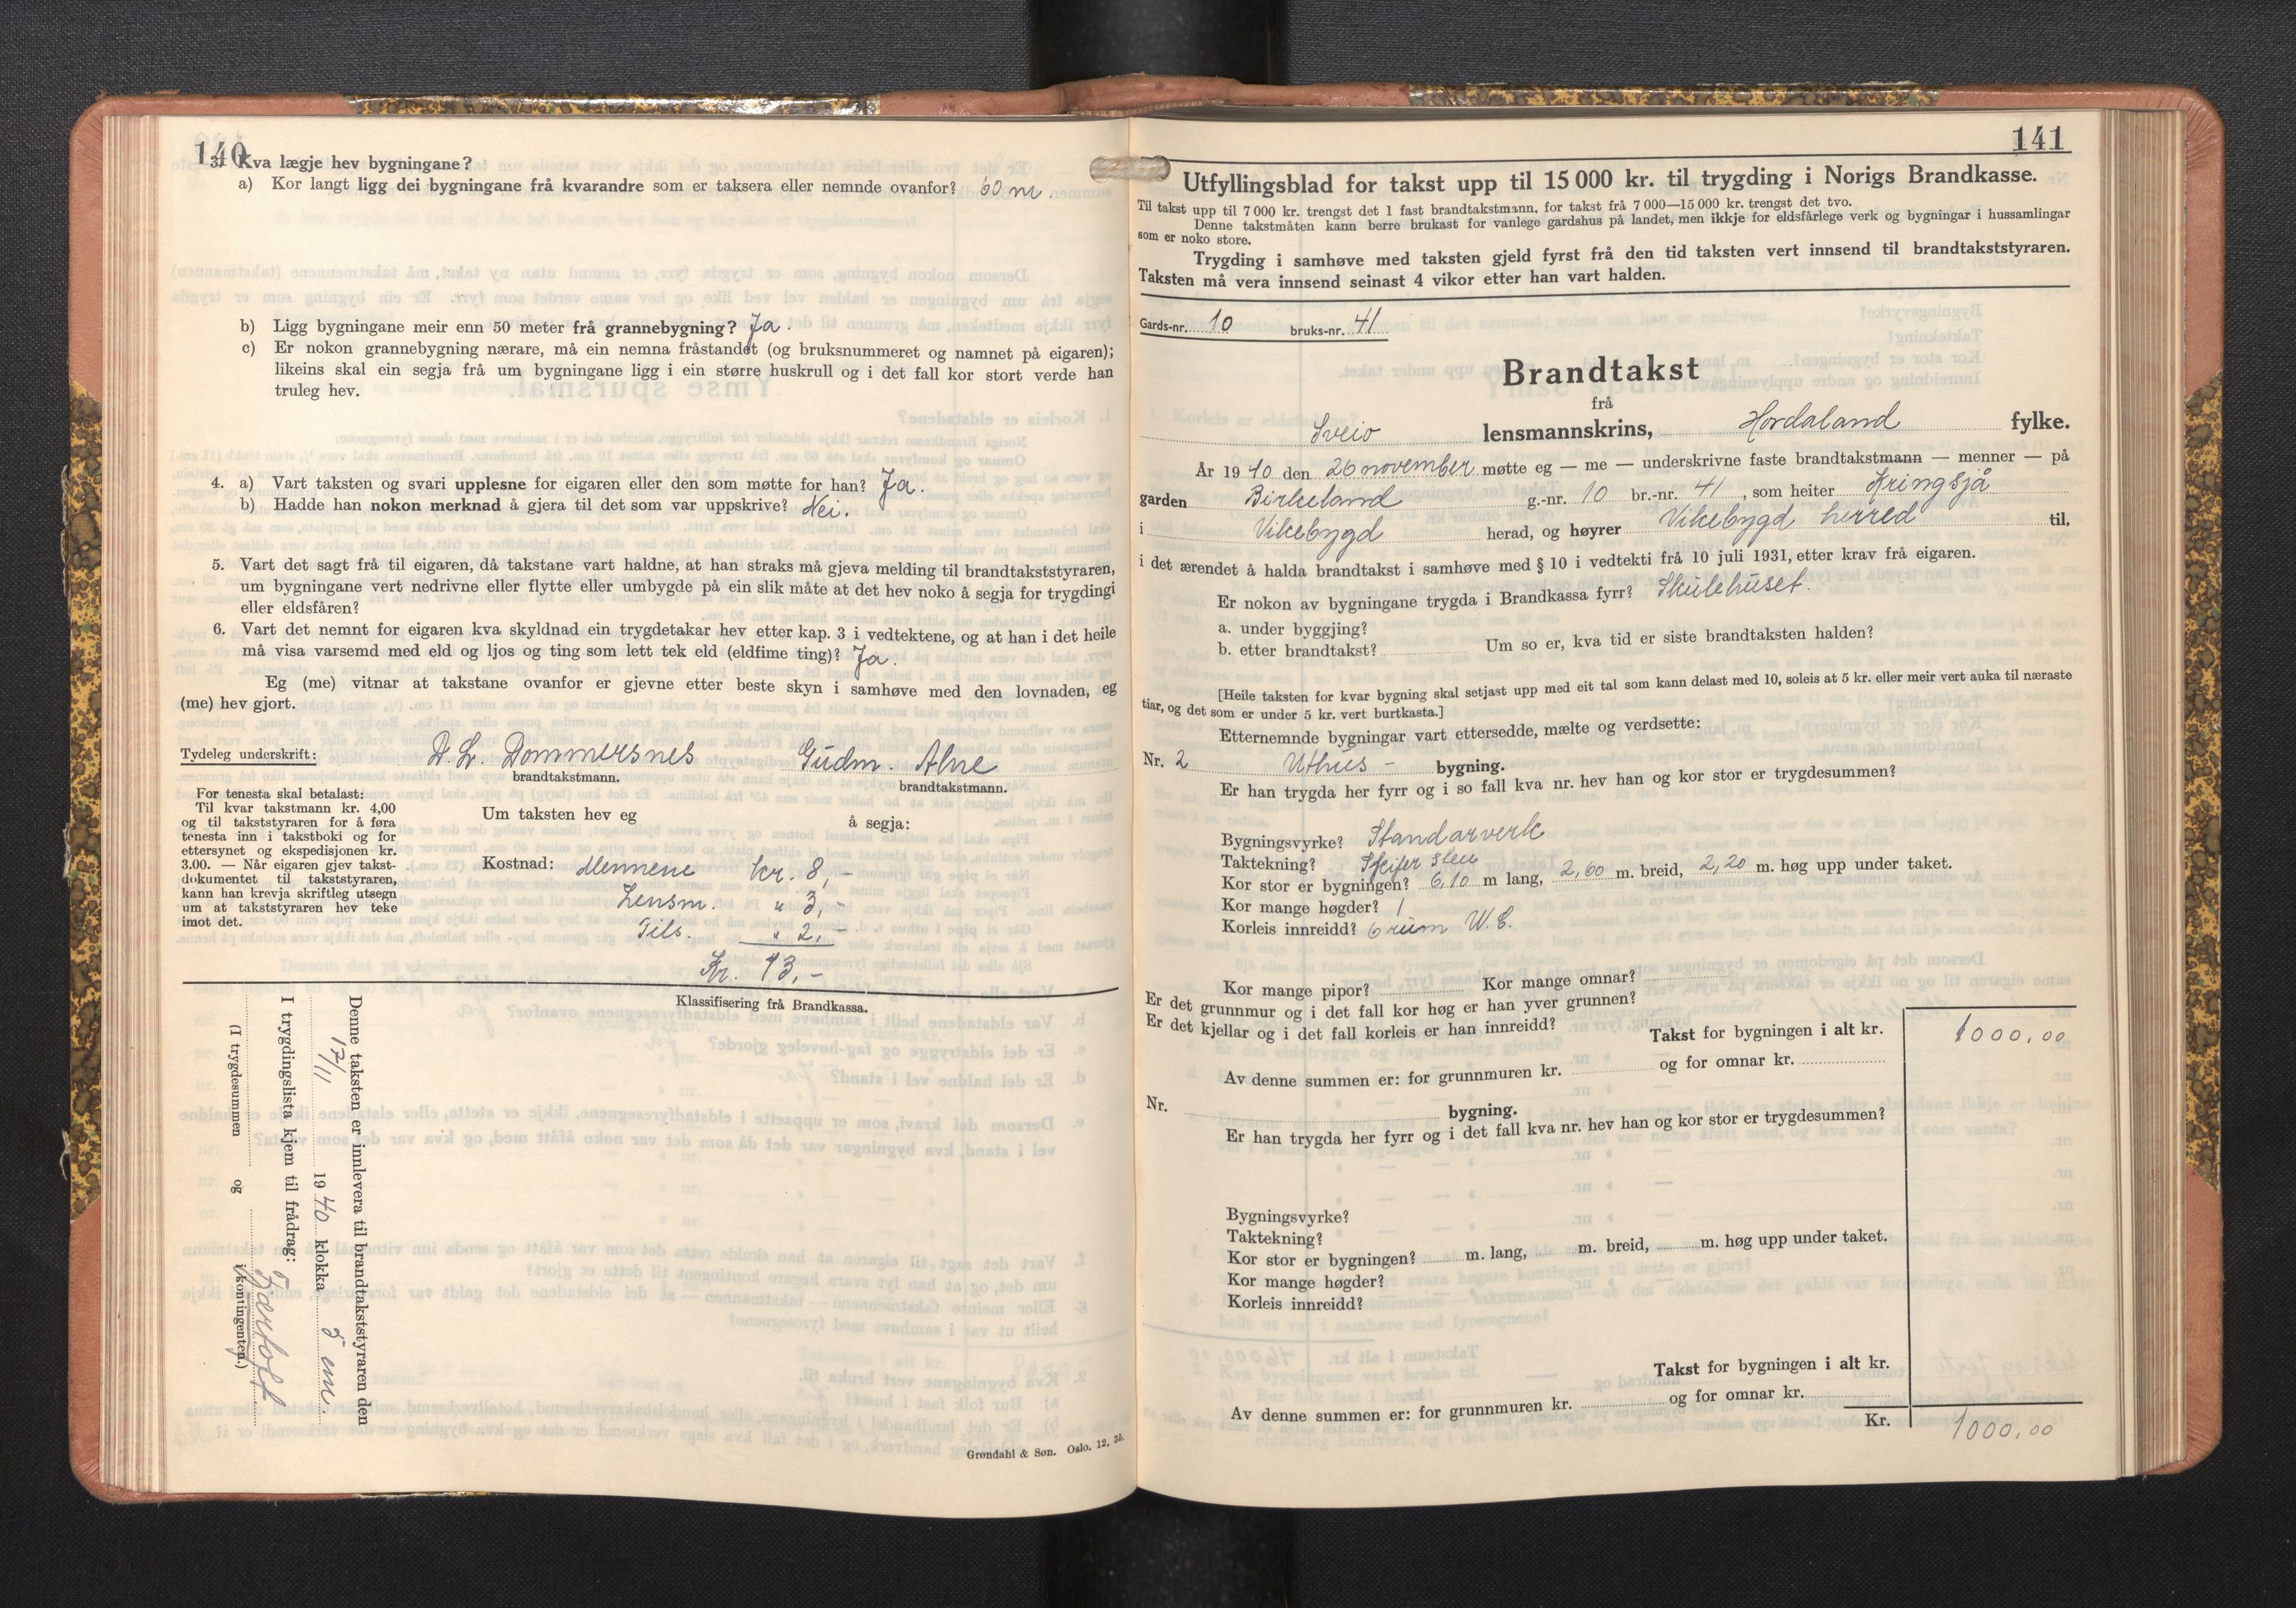 140
3. Kva lægje hev bygningane?
a) Kor langt ligg dei bygningane frå kvarandre som er taksera eller nemnde ovanfor? 60 m.
b) Ligg bygningane meir enn 50 meter frå grannebygning? Ja.
c) Er nokon grannebygning nærare, må ein nemna fråstandet (og bruksnummeret og namnet på eigaren);
likeins skal ein segja frå um bygningane ligg i ein større huskrull og i det fall kor stort verde han
truleg hev.
4. a) Vart taksten og svari upplesne for eigaren eller den som møtte for han? Ja.
b) Hadde han nokon merknad å gjera til det som var uppskrive? Nei.
5. Vart det sagt frå til eigaren, då takstane vart haldne, at han straks må gjeva melding til brandtakststyraren,
um bygningane vert nedrivne eller flytte eller umbygde på ein slik måte at det hev noko å segja for trygdingi
eller eldsfåren?
6. Vart det nemnt for eigaren kva skyldnad ein trygdetakar hev etter kap. 3 i vedtektene, og at han i det heile
må visa varsemd med eld og ljos og ting som lett tek eld (eldfime ting)? Ja.
Eg (me) vitnar at takstane ovanfor er gjevne etter beste skyn i samhøve med den lovnaden, eg
(me) hev gjort.
Tydeleg underskrift: D. L. Dommersnes Gudm. Alne
brandtakstmann. brandtakstmann.
For tenesta skal betalast:
Til kvar takstmann kr. 4,00
og til takststyraren for å føra
tenesta inn i takstboki og for
ettersynet og ekspedisjonen kr.
3.00. — Når eigaren gjev takst-
dokumentet til takststyraren,
kann han krevja skriftleg utsegn
um at takststyraren hev teke
imot det.
Um taksten hev eg å segja:
Kostnad: Mennene kr. 8,-
Lensm. " 3,-
Tils. " 2,-
Kr. 13,-
Klassifisering frå Brandkassa.
Denne taksten er innlevera til brandtakststyraren den
17/11 1940 klokka 5 em.
I trygdingslista kjem til frådrag:
(I trygdesummen og i kontingenten.)
Grøndahl & Søn. Oslo. 12. 35.
141
Utfyllingsblad for takst upp til 15 000 kr. til trygding i Norigs Brandkasse.
Til takst upp til 7 000 kr. trengst det 1 fast brandtakstmann, for takst frå 7 000—15 000 kr. trengst det tvo.
Denne takstmåten kann berre brukast for vanlege gardshus på landet, men ikkje for eldsfårlege verk og bygningar i hussamlingar
som er noko store.
Trygding i samhøve med taksten gjeld fyrst frå den tid taksten vert innsend til brandtakststyraren.
Taksten må vera innsend seinast 4 vikor etter han vart halden.
Gards-nr. 10 bruks-nr. 41
Brandtakst
frå
Sveio lensmannskrins, Hordaland fylke.
År 1940 den 26 november møtte eg — me — underskrivne faste brandtakstmann — menner — på
garden Birkeland g.-nr. 10 br.-nr. 41, som heiter Kringsjå
i Vikebygd herad, og høyrer Vikebygd herred til,
i det ærendet å halda brandtakst i samhøve med § 10 i vedtekti frå 10 juli 1931, etter krav frå eigaren.
Er nokon av bygningane trygda i Brandkassa fyrr? Skulehuset.
a. under byggjing?
b. etter brandtakst? Um so er, kva tid er siste brandtaksten halden?
[Heile taksten for kvar bygning skal setjast upp med eit tal som kann delast med 10, soleis at 5 kr. eller meir vert auka til næraste
tiar, og det som er under 5 kr. vert burtkasta.]
Etternemnde bygningar vart ettersedde, mælte og verdsette:
Nr. 2 Uthus - bygning.
Er han trygda her fyrr og i so fall kva nr. hev han og kor stor er trygdesummen?
Bygningsvyrke? Standarverk
Taktekning? Skifer sten
Kor stor er bygningen? 6,10 m lang, 2,60 m. breid, 2,20 m. høg upp under taket.
Kor mange høgder? 1
Korleis innreidd? 6 rum W. C.
Kor mange pipor? Kor mange omnar?
Er det grunnmur og i det fall kor høg er han yver grunnen?
Er det kjellar og i det fall korleis er han innreidd?
Takst for bygningen i alt kr. 1000,00
Av denne summen er: for grunnmuren kr. og for omnar kr.
Nr. bygning.
Er han trygda her fyrr og i det fall kva nr. hev han og kor stor er trygdesummen?
Bygningsvyrke?
Taktekning?
Kor stor er bygningen? m. lang, m. breid, m. høg upp under taket.
Kor mange høgder?
Korleis innreidd?
Takst for bygningen i alt kr.
Av denne summen er: for grunnmuren kr. og for omnar kr.
Kr. 1000,00